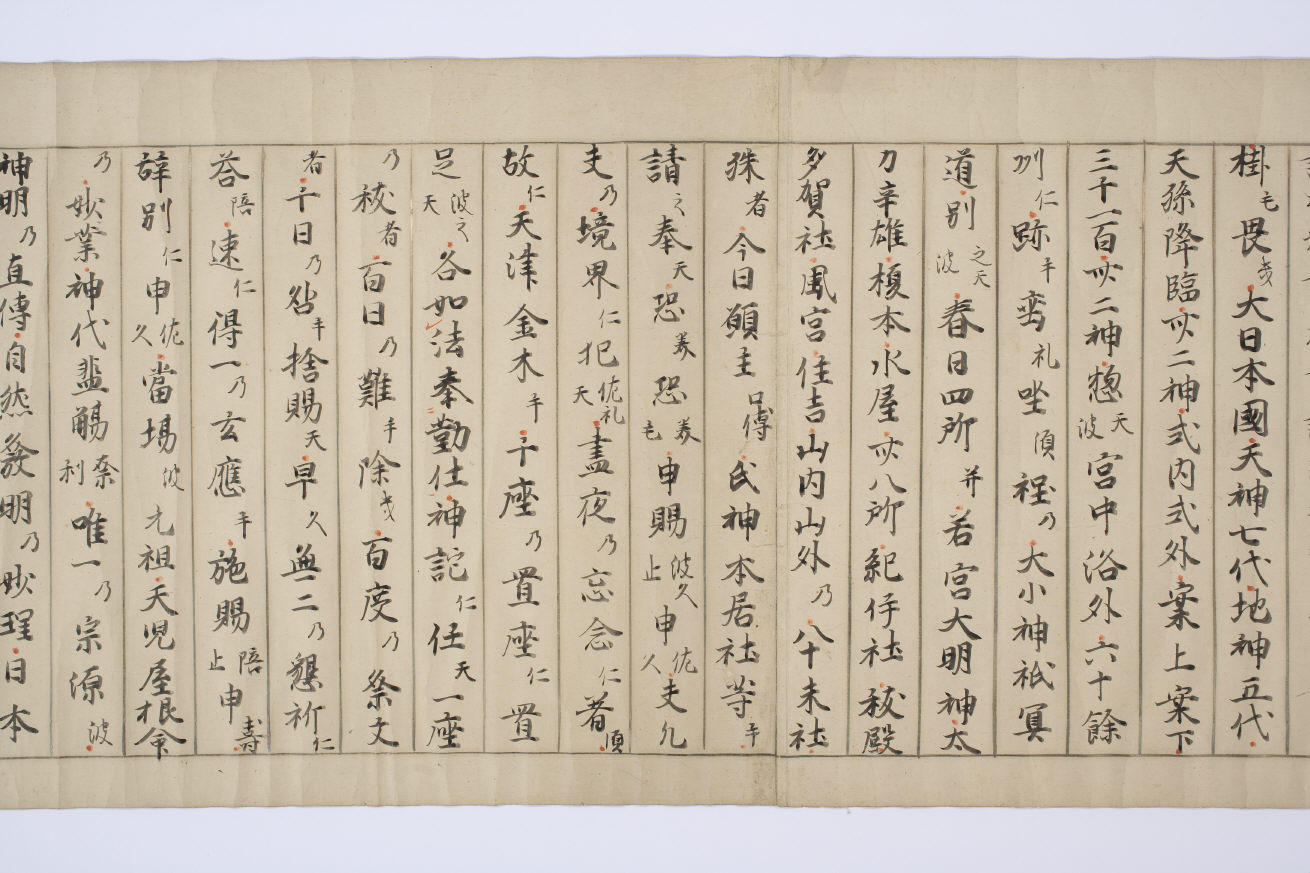 掛毛畏幾大日本國天神七代地神五代
天孫降臨卅二神式内式外案上案下
三千一百卅二神惣天波宮中洛外六十餘
州仁跡乎垂礼坐須程乃大小神祇冥
道別之天波春日四所并若宮大明神太
力辛雄榎本水屋卅八所紀伊社秡殿
多賀社風宮住吉山内山外乃八十末社
殊者今日願主口傳氏神本居社等乎
請之奉天恐美恐美毛申賜波久止申佐久夫九
夫乃境界仁犯佐礼天盡夜乃忘念仁著須
故仁天津金木乎千座乃置座仁置
足波之天各如法奉勤仕神詫仁任天一座
乃秡者百日乃難乎除幾百度乃祭文
者千日乃咎乎捨賜天早久無二乃懇祈仁
荅陪速仁得一乃玄應乎施賜陪止申壽
辞別仁申佐久當場波元祖天児屋根命
乃妙業神代盬觴奈利唯一乃宗源波
神明乃直傳自然發明乃妙理日本